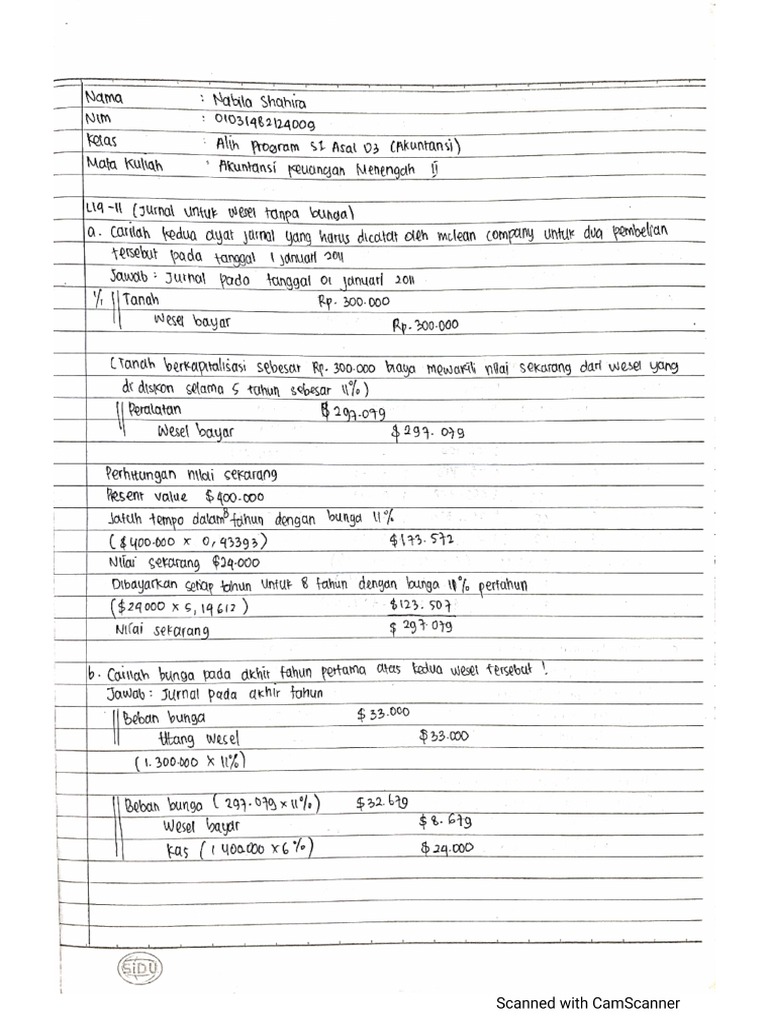 Nama : Nabila Shahira
Nim : 01031482124009
Kelas : Alih Program S1 Asal D3 (Akuntansi)
Mata Kuliah : Akuntansi Keuangan Menengah II
L14-11 (Jurnal untuk wesel tanpa bunga)
a. Carilah kedua ayat jarnal yang harus dicatat oleh mclean company untuk dua pembelian
tersebut pada tanggal 1 januari 2011
Jawab : Jurnal pada tanggal 01 januari 2011
1/1 Tanah Rp. 300.000
Wesel bayar Rp. 300.000
(Tanah berkapitalisasi sebesar Rp. 300.000 haya mewakili nilai sekarang dari wesel yang
di diskon selama 5 tahun sebesar 11%)
Peralatan $ 297.079
Wesel bayar $ 297.079
Perhitungan nilai sekarang
Present value $ 400.000
Jatuh tempo dalam 8 tahun dengan bunga 11%
($ 400.000 x 0,43393) $173.572
Nilai sekarang $24.000
Dibayarkan setiap tahun untuk 8 tahun dengan bunga 11% pertahun
($24000 x 5,14612) $123.507
Nilai sekarang $ 297.079
b. Carilah bunga pada akhir tahun pertama atas kedua wesel tersebut !
Jawab : Jurnal pada akhir tahun
Beban bunga $ 33.000
Utang wesel $33.000
(1.300.000 x 11%)
Beban bunga (297.079 x 11%) $32.679
Wesel bayar $ 8.679
Kas (1 400.000 x 6%) $ 24.000
SiDU
Scanned with CamScanner